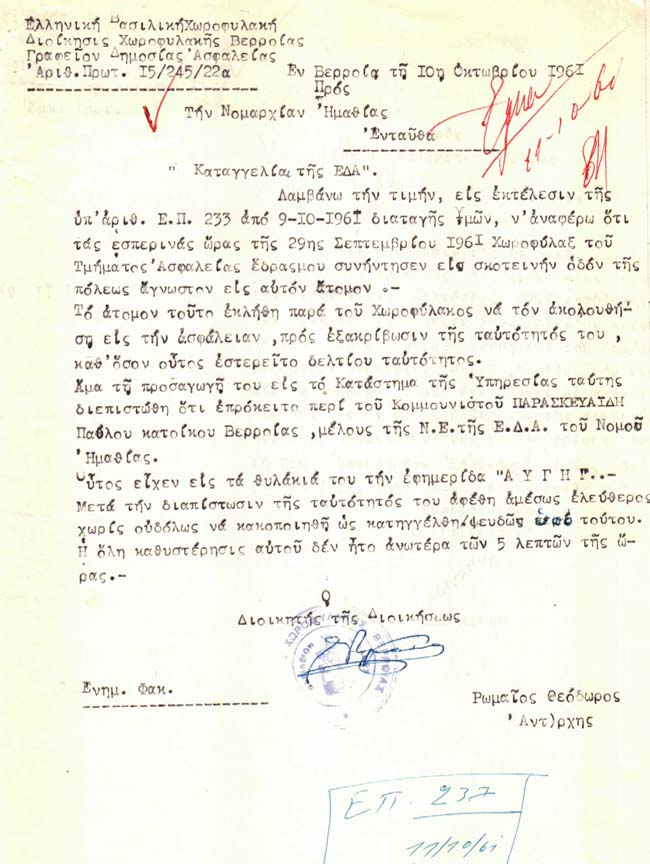 Ἑλληνική ΒασιλικήΧωροφυλακή
Διοίκησις Χωροφυλακῆς Βερροίας
Γραφεῖον Δημοσίας Ἀσφαλείας
Ἀριθ.Πρωτ. I5/245/22α
Ἐν Βερροίᾳ τῇ IOῃ Ὀκτωβρίου I96I
Πρός
Τήν Νομαρχίαν Ἠμαθίας
Ἐνταῦθα
" Καταγγελίαι τῆς ΕΔΑ".
Λαμβάνω τήν τιμήν, εἰς ἐκτέλεσιν τῆς
ὑπ'ἀριθ. Ε.Π. 233 ἀπό 9-IO-I96I διαταγῆς Ὑμῶν, ν'ἀναφέρω ὅτι
τάς ἑσπερινάς ὥρας τῆς 29ης Σεπτεμβρίου I96I Χωροφύλαξ τοῦ
Τμήματος Ἀσφαλείας ἕδρας μου συνήντησεν εἰς σκοτεινήν ὁδόν τῆς
πόλεως ἄγνωστον εἰς αὐτόν ἄτομον .-
Τό ἄτομον τοῦτο ἐκλήθη παρά τοῦ Χωροφύλακος νά τόν ἀκολουθή-
σῃ εἰς τήν ἀσφάλειαν ,πρός ἐξακρίβωσιν τῆς ταὐτότητός του ,
καθ'ὅσον οὗτος ἐστερεῖτο δελτίου ταὐτότητος.
Ἅμα τῇ προσαγωγῇ του εἰς τό Κατάστημα τῆς Ὑπηρεσίας ταύτης
διεπιστώθη ὅτι ἐπρόκειτο περί τοῦ Κομμουνιστοῦ ΠΑΡΑΣΚΕΥΑΙΔΗ
Παύλου κατοίκου Βερροίας ,μέλους τῆς Ν.Ε.τῆς Ε.Δ.Α. τοῦ Νομοῦ
Ἠμαθίας.
Οὗτος εἶχεν εἰς τά θυλάκιά του τήν ἐφημερίδα "Α Υ Γ Η"..-
Μετά τήν διαπίστωσιν τῆς ταὐτότητός του ἀφέθη ἀμέσως ἐλεύθερος
χωρίς οὐδόλως νά κακοποιηθῇ ὡς κατηγγέλθη/ψευδῶς ὑπό τούτου.
Ἡ ὅλη καθυστέρησις αὐτοῦ δέν ἦτο ἀνωτέρα τῶν 5 λεπτῶν τῆς ὥ-
ρας.-
Ὁ
Διοικητής τῆς Διοικήσεως
Ἐνημ. Φακ.
Ρωμαῖος Θεόδωρος
Ἀντ)ρχης
ΕΠ. 237
11/10/61